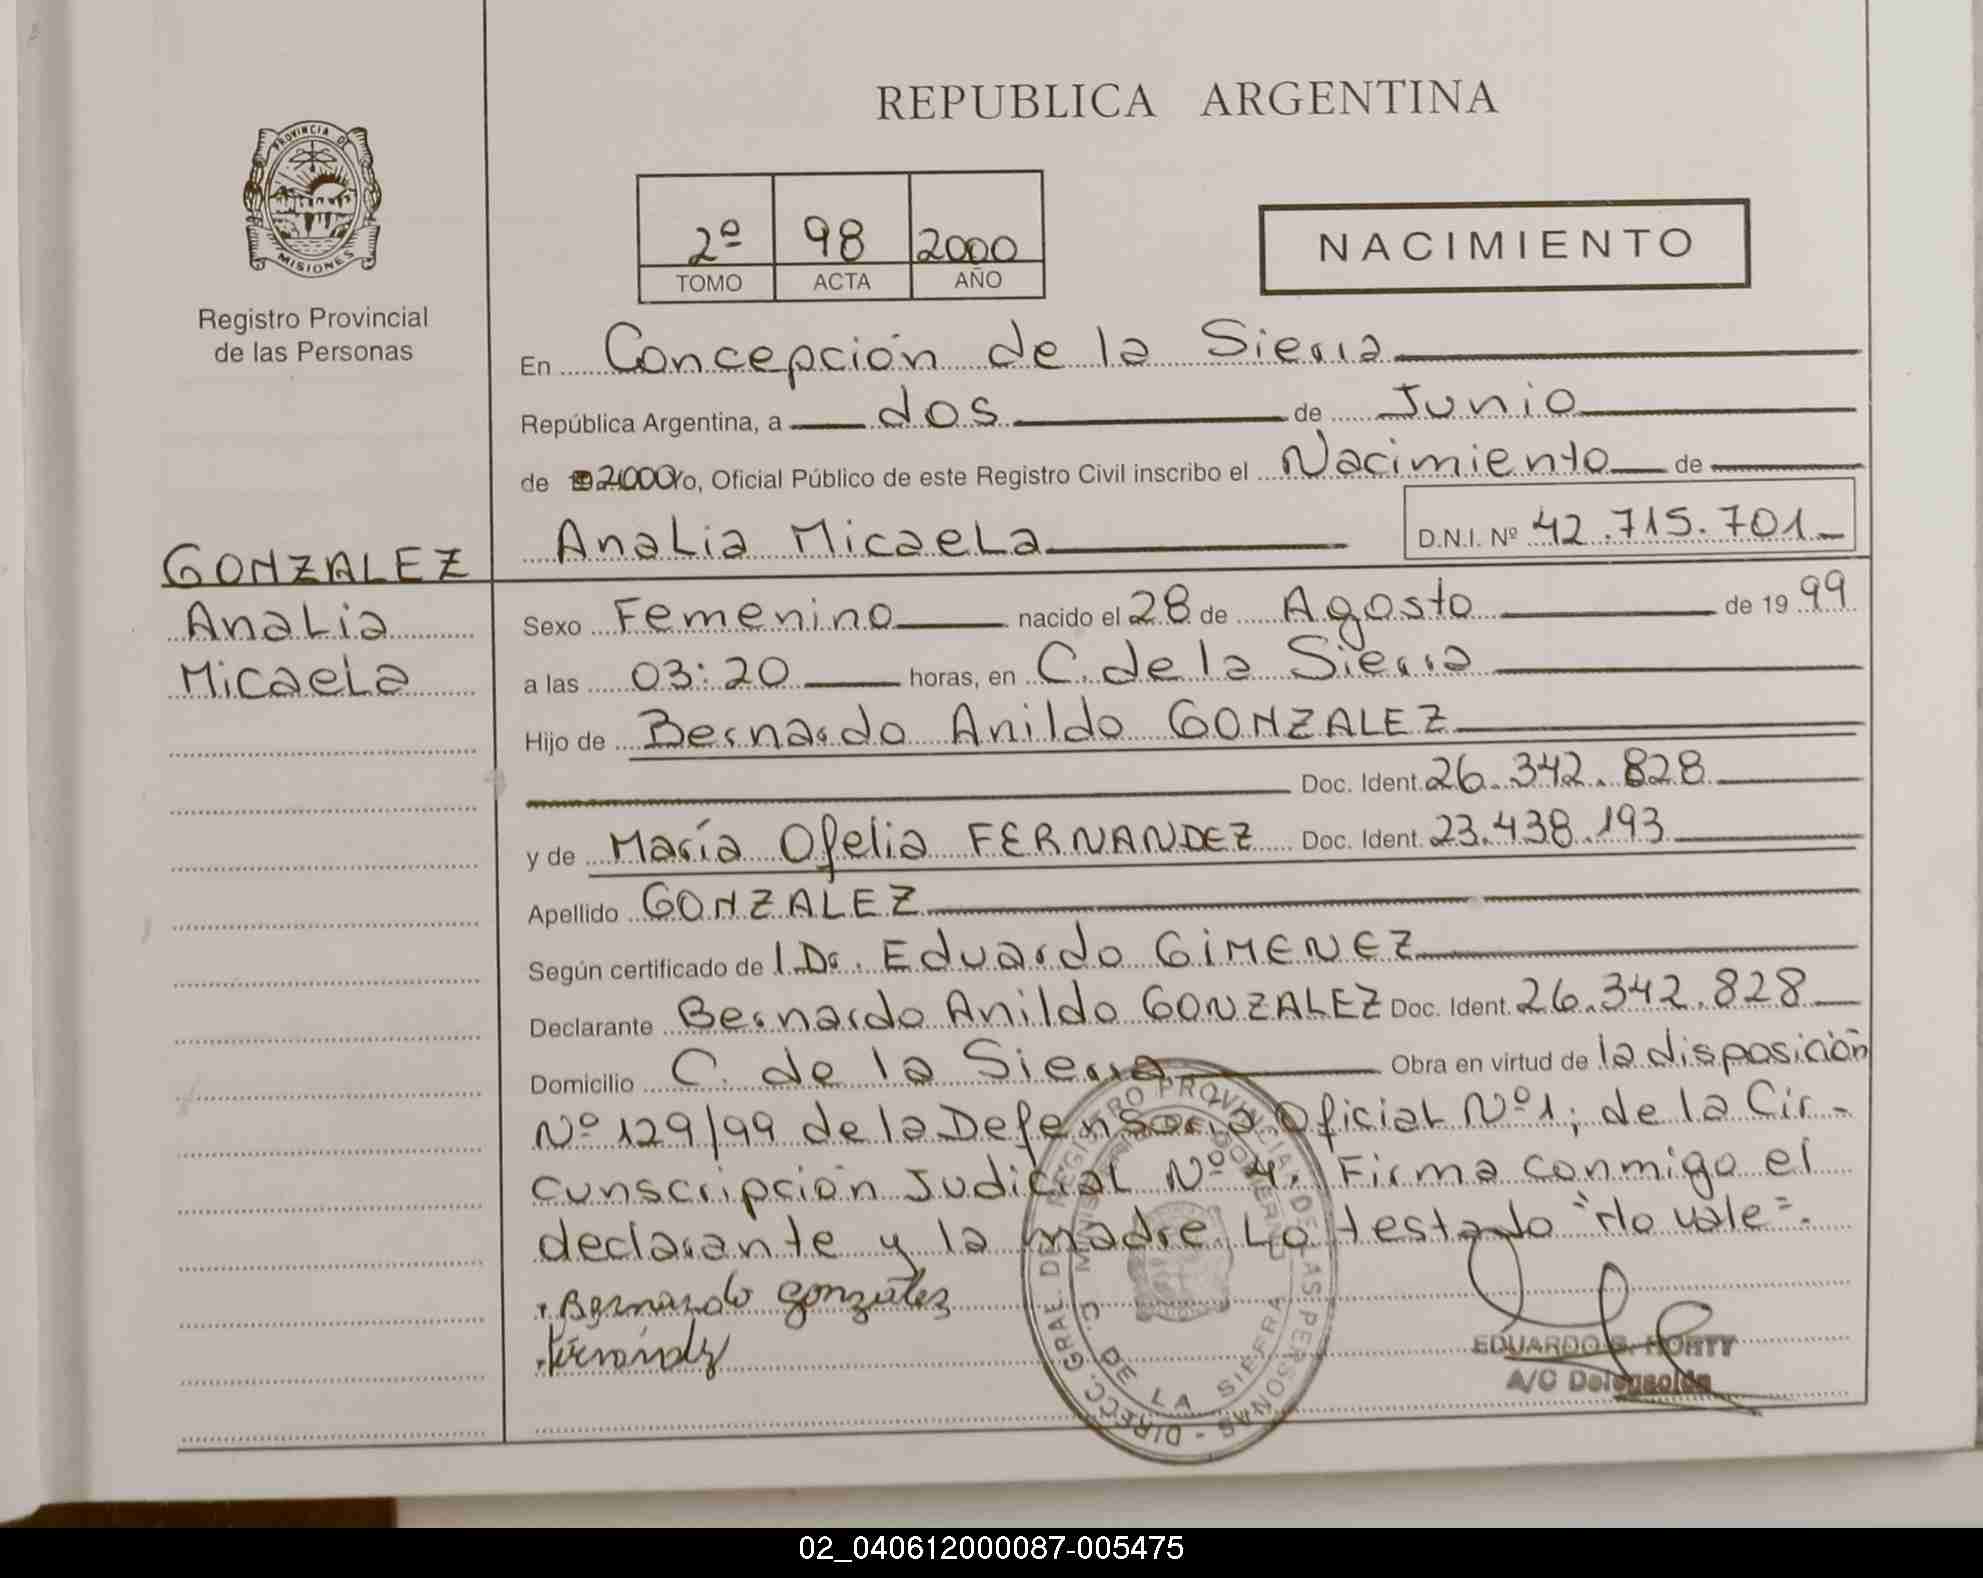 REPUBLICA ARGENTINA
PROVINCIA DE
MISIONES
Registro Provincial
de las Personas
2º 98 2000
TOMO ACTA AÑO
NACIMIENTO
En Concepción de la Sierra
República Argentina, a dos de Junio
de 2000 Yo, Oficial Público de este Registro Civil inscribo el Nacimiento de
Analia Micaela D.N.I. Nº 42.715.701
GONZALEZ
Analia
Micaela
Sexo Femenino nacido el 28 de Agosto de 19 99
a las 03:20 horas, en C. de la Sierra
Hijo de Bernardo Anildo GONZALEZ
Doc. Ident. 26.342.828
y de María Ofelia FERNANDEZ Doc. Ident. 23.438.193
Apellido GONZALEZ
Según certificado de l Dr. Eduardo GIMENEZ
Declarante Bernardo Anildo GONZALEZ Doc. Ident. 26.342.828
Domicilio C. de la Sierra Obra en virtud de la disposición
Nº 129/99 de la Defensoria Oficial Nº1; de la Cir-
cunscripción Judicial Nº 4. Firma conmigo el
declarante y la madre. Lo testado "No vale".
Bernardo gonzalez
EDUARDO
A/C
DIRECC. GRAL. DE REGISTRO PROVINCIAL DE LAS PERSONAS
C. DE LA SIERRA
02_040612000087-005475